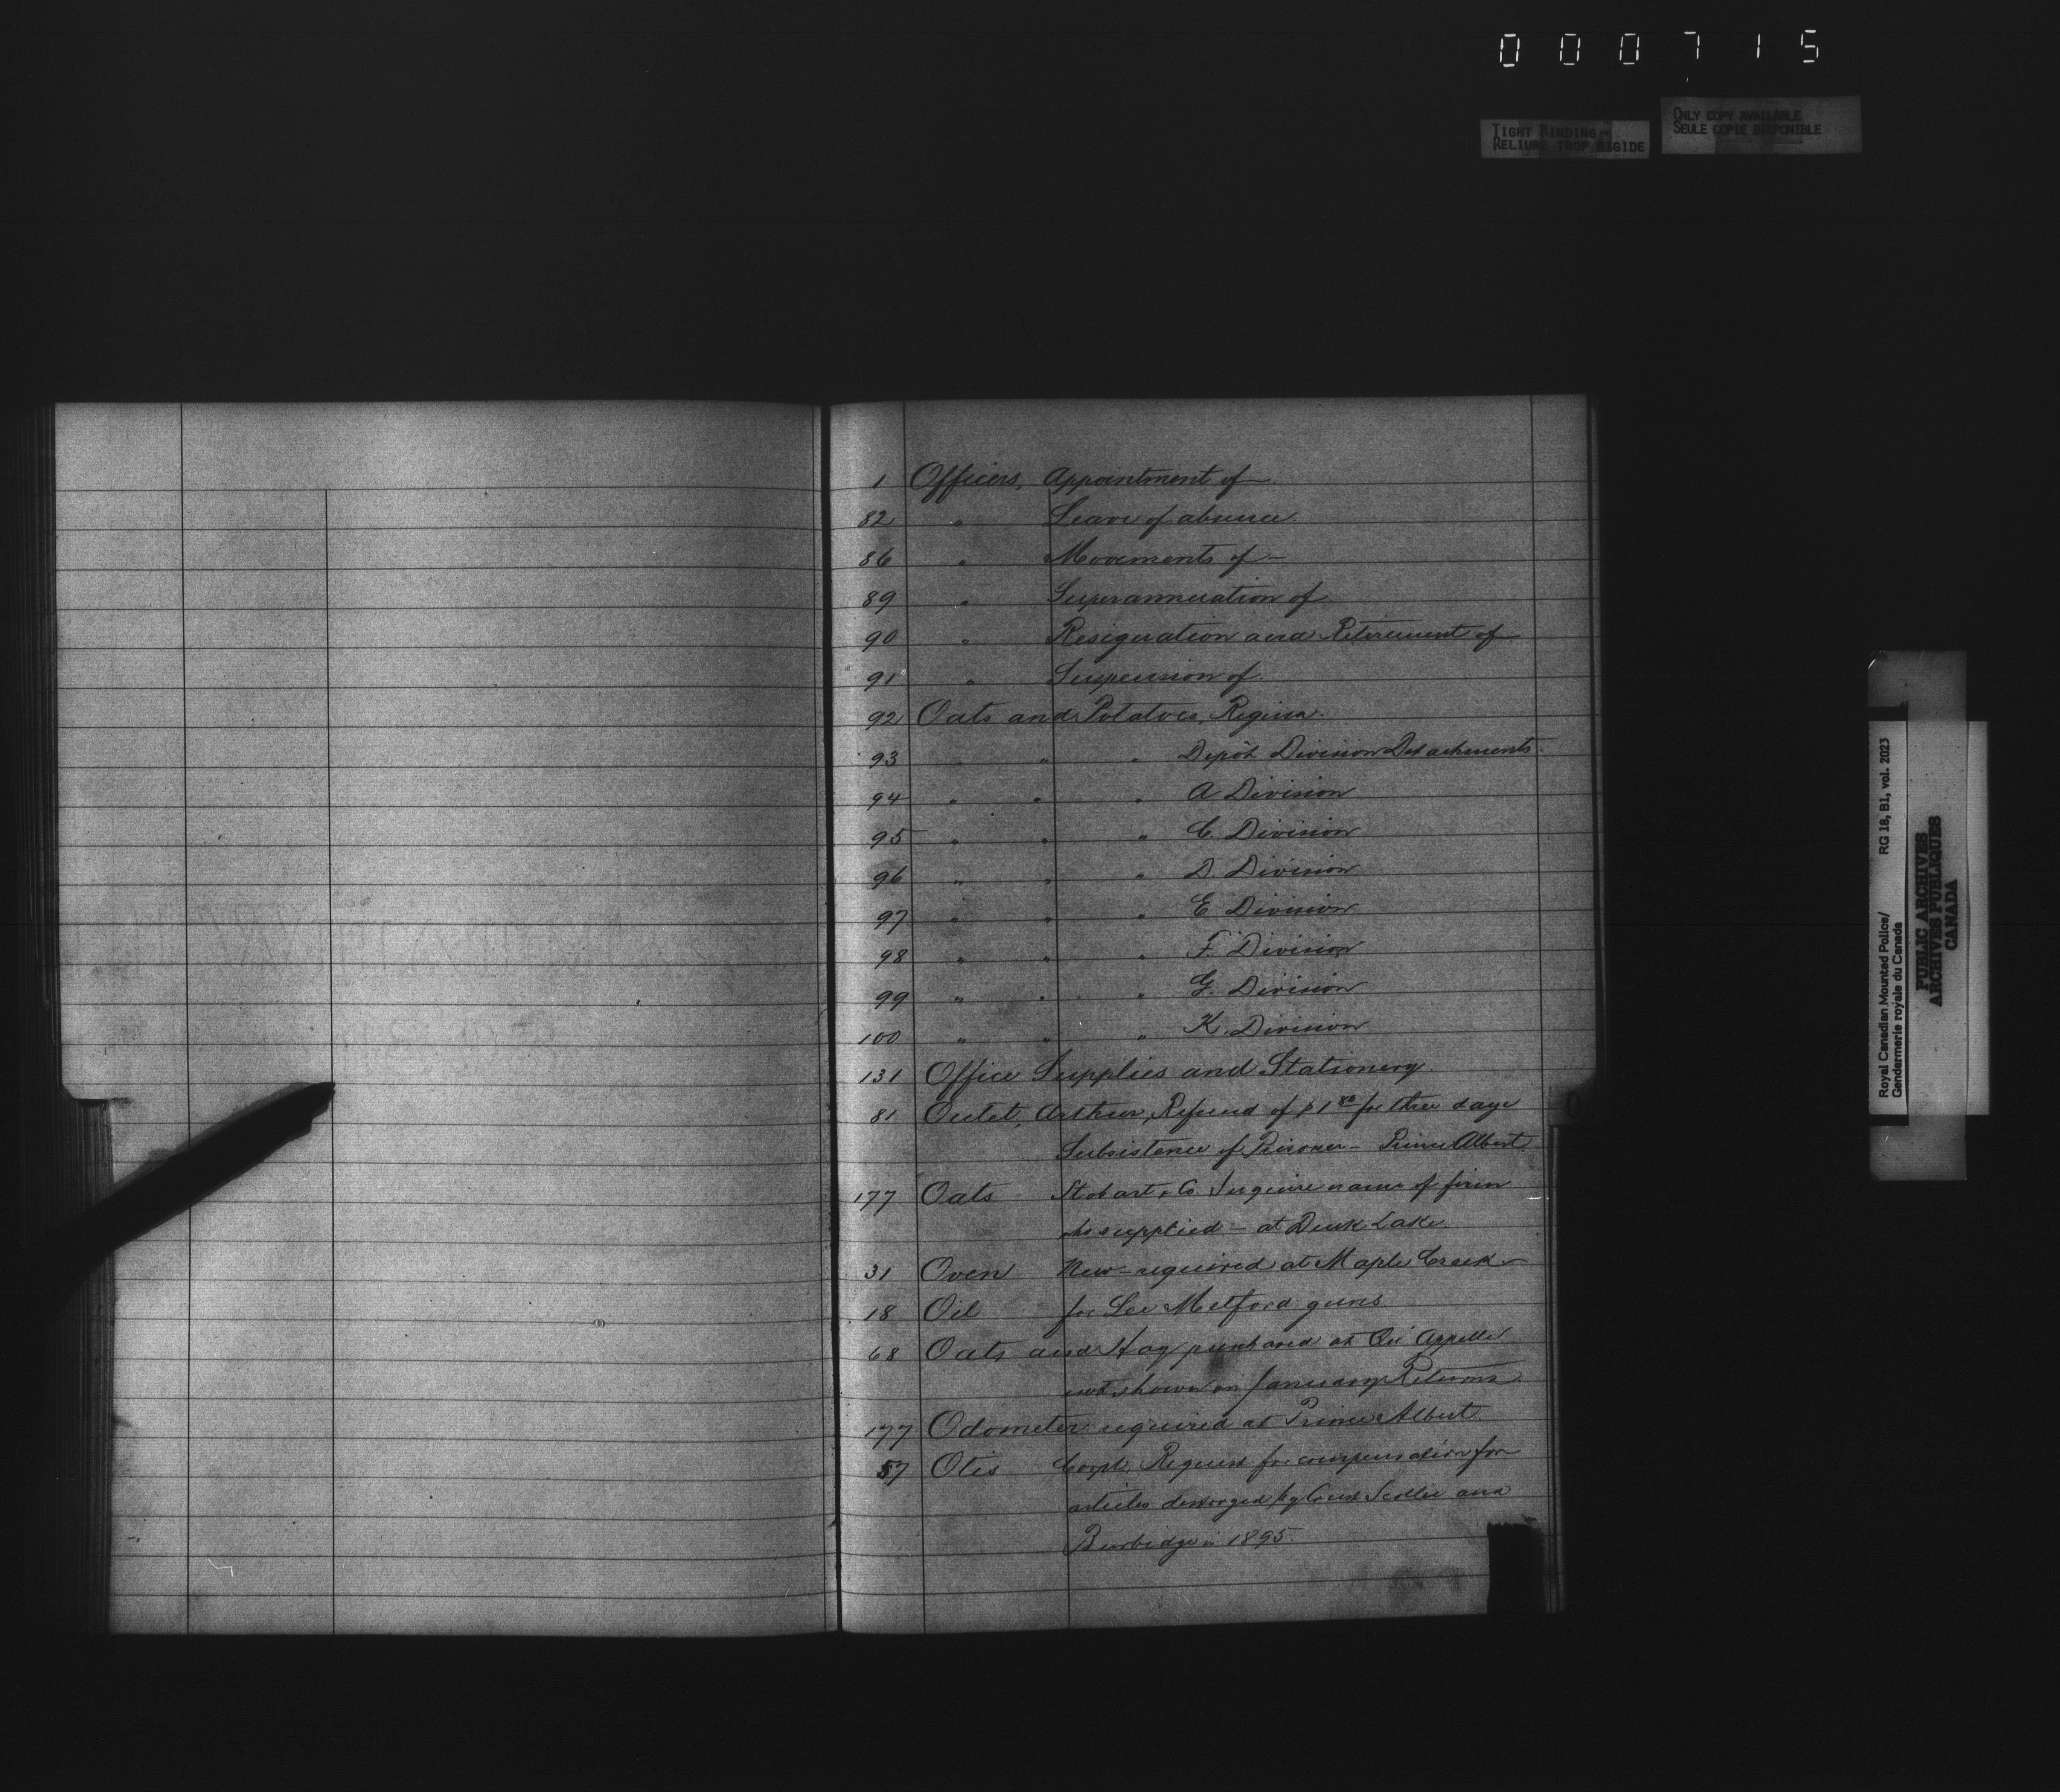 000715
TIGHT BINDING
RELIURE TROP RIGIDE
ONLY COPY AVAILABLE
SEULE COPIE DISPONIBLE
1 Officers, Appointment of —
82 " Leave of absence.
86 " Movements of —
89 " Superannuation of
90 " Resignation and Retirement of
91 " Suspension of.
92 Oats and Potatoes, Regina.
93 " " " Depôt Division Detachments.
94 " " " A Division
95 " " " C. Division
96 " " " D. Division
97 " " " E Division
98 " " " F. Division
99 " " " G. Division
100 " " " K. Division
131 Office Supplies and Stationery.
81 Arthur, Refund of $1 80 for three days
Subsistence of Prisoner — Prince Albert.
177 Oats Stobart & Co. Inquire name of firm
who supplied — at Duck Lake.
31 Oven New — required at Maple Creek —
18 Oil for Lee Metford guns.
68 Oats and Hay purchased at Qu'Appelle
not shown on January Returns.
177 Odometer required at Prince Albert.
57 Otis Corpl. Request for compensation for
articles by Const and
Burbidge in 1895.
O
Royal Canadian Mounted Police/
Gendarmerie royale du Canada
RG 18, B1, vol. 2023
PUBLIC ARCHIVES
ARCHIVES PUBLIQUES
CANADA